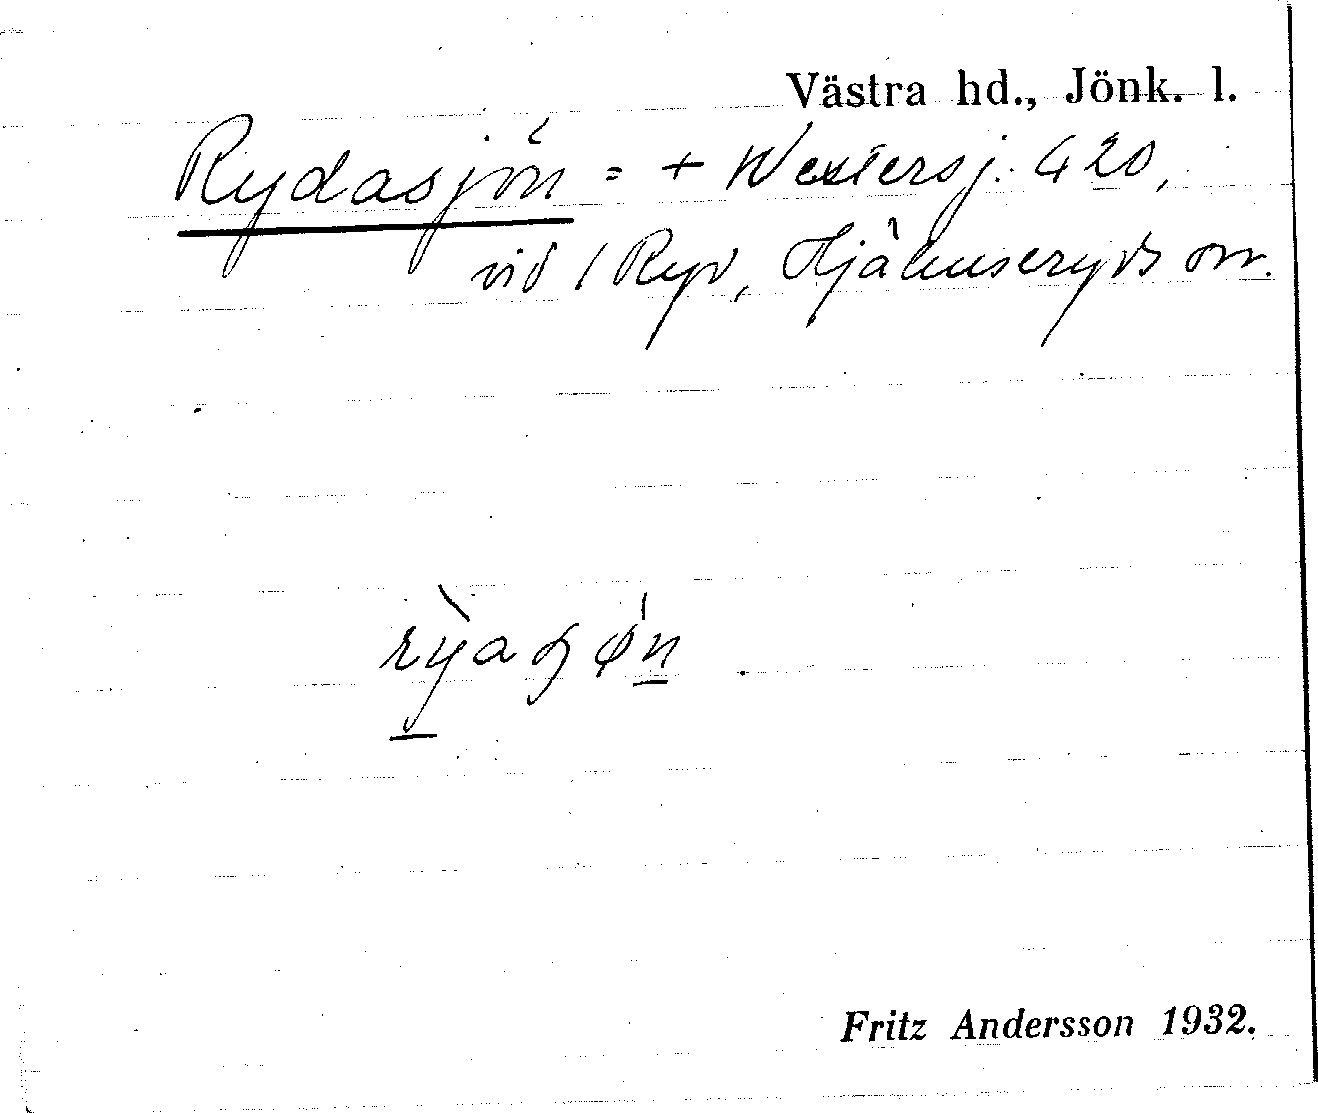 Västra hd., Jönk. l.
Rydasjön = + Westersj. 420,
vid 1 Ryd, Hjälmseryds sn.
Fritz Andersson 1932.